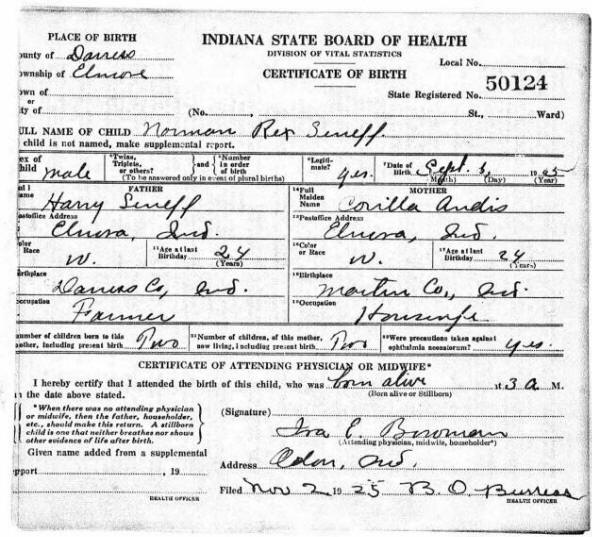 PLACE OF BIRTH
INDIANA STATE BOARD OF HEALTH
DIVISION OF VITAL STATISTICS
ounty of Daviess
Local No.
CERTIFICATE OF BIRTH
ownship of Elmore
own of
State Registered No. 50124
or
ity of (No., St., Ward)
ULL NAME OF CHILD Norman Rex Seneff
child is not named, make supplemental report.
ex of hild male
Twins, Triplets, or others? and Number in order of birth
(To be answered only in event of plural births)
Legiti-mate? yes.
Date of Birth Sept. 1925
(Month) (Day) (Year)
FATHER
MOTHER
ame Harry Seneff
Full Maiden Name Corilla Andis
Postoffice Address
Elnora, Ind.
Postoffice Address
Elnora, Ind.
Color Race W.
Age at last Birthday 24 (Years)
Color or Race W.
Age at last Birthday 24 (Years)
Birthplace
Daviess Co, Ind.
Birthplace
Martin Co., Ind.
Occupation
Farmer
Occupation
Housewife
umber of children born to this other, including present birth Two
Number of children, of this mother, now living, including present birth Two
Were precautions taken against ophthalmia neonatorum? yes.
CERTIFICATE OF ATTENDING PHYSICIAN OR MIDWIFE*
I hereby certify that I attended the birth of this child, who was born alive at 3 a M.
(Born alive or Stillborn)
n the date above stated.
*When there was no attending physician
or midwife, then the father, householder,
etc., should make this return. A stillborn
child is one that neither breathes nor shows
other evidence of life after birth.
(Signature)
Ira E. Bowman
(Attending physician, midwife, householder*)
Given name added from a supplemental
Address Odon, Ind.
eport , 19
Filed Nov 2 1925 B. O. Burress
HEALTH OFFICER
HEALTH OFFICER